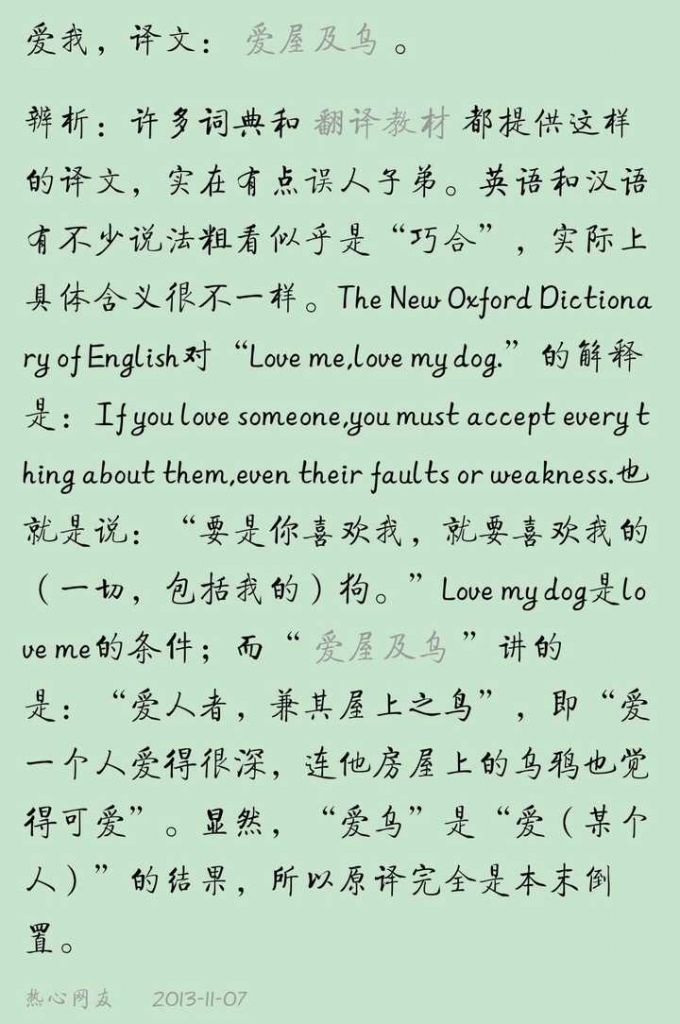 爱我，译文：爱屋及乌。
辨析：许多词典和翻译教材都提供这样
的译文，实在有点误人子弟。英语和汉语
有不少说法粗看似乎是“巧合”，实际上
具体含义很不一样。The New Oxford Dictiona
ry of English对“Love me,love my dog.”的解释
是：If you love someone,you must accept every t
hing about them,even their faults or weakness.也
就是说：“要是你喜欢我，就要喜欢我的
（一切，包括我的）狗。”Love my dog是lo
ve me的条件；而“爱屋及乌”讲的
是：“爱人者，兼其屋上之鸟”，即“爱
一个人爱得很深，连他房屋上的乌鸦也觉
得可爱”。显然，“爱乌”是“爱（某个
人）”的结果，所以原译完全是本末倒
置。
热心网友 2013-11-07